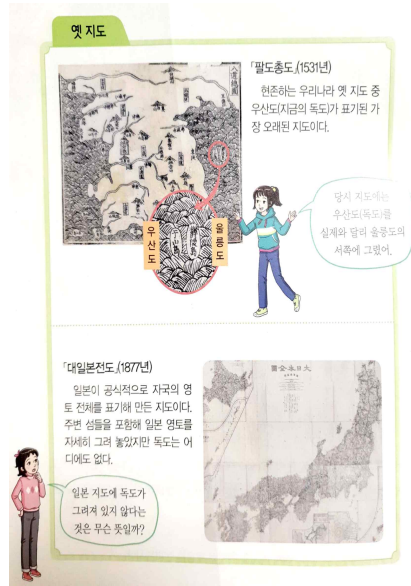 옛 지도
「팔도총도」(1531년)
현존하는 우리나라 옛 지도 중
우산도(지금의 독도)가 표기된 가
장 오래된 지도이다.
八道總圖
우산도
울릉도
당시 지도에는
우산도(독도)를
실제와 달리 울릉도의
서쪽에 그렸어.
「대일본전도」(1877년)
일본이 공식적으로 자국의 영
토 전체를 표기해 만든 지도이다.
주변 섬들을 포함해 일본 영토를
자세히 그려 놓았지만 독도는 어
디에도 없다.
일본 지도에 독도가
그려져 있지 않다는
것은 무슨 뜻일까?